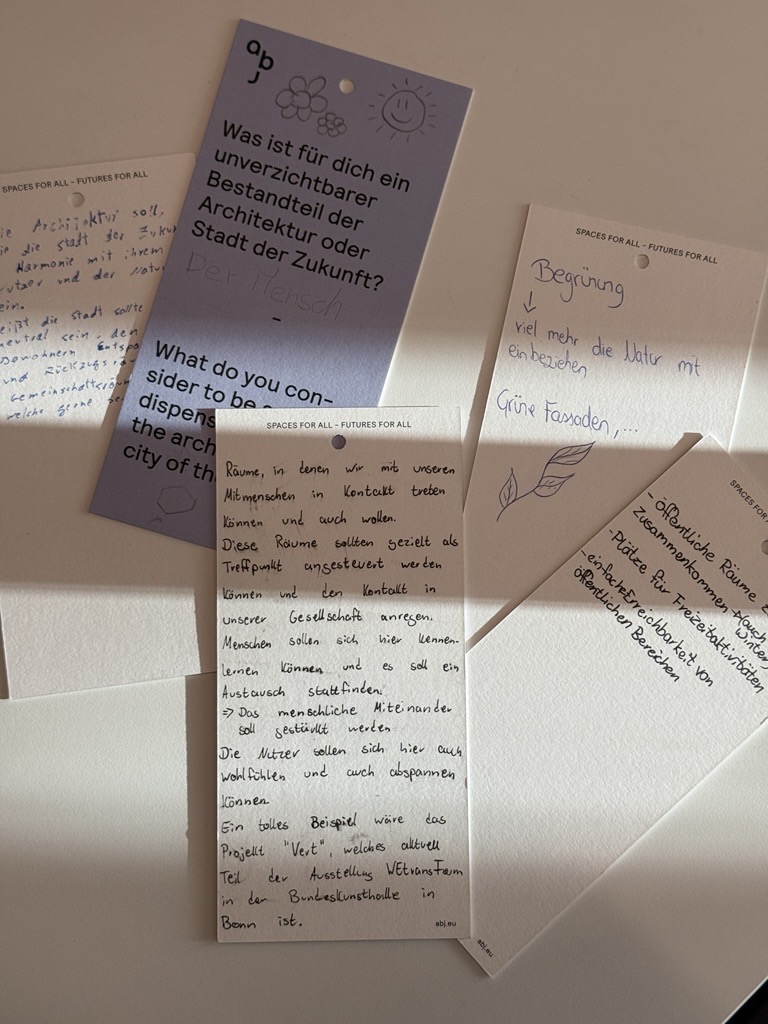 SPACES FOR ALL – FUTURES FOR ALL
Die Architektur soll,
die die stadt der
Harmonie mit ihrem
und der Natur
sein.
die stadt sollte
neutral sein, den
Bewohnern
und
welche gerne
abj
Was ist für dich ein
unverzichtbarer
Bestandteil der
Architektur oder
Stadt der Zukunft?
Der Mensch
–
What do you con-
sider to be
dispens
the arch
city of th
SPACES FOR ALL – FUTURES FOR ALL
Begrünung
↓
viel mehr die Natur mit
einbeziehen
Grüne Fassaden,...
SPACES FOR ALL – FUTURES FOR ALL
Räume, in denen wir mit unseren
Mitmenschen in Kontakt treten
können und auch wollen.
Diese Räume sollten gezielt als
Treffpunkt angesteuert werden
können und den Kontakt in
unserer Gesellschaft anregen.
Menschen sollen sich hier kennen-
lernen können und es soll ein
Austausch stattfinden.
=> Das menschliche Miteinander
soll gestärkt werden
Die Nutzer sollen sich hier auch
wohlfühlen und auch abspannen
können
Ein tolles Beispiel wäre das
Projekt "Vert", welches aktuell
Teil der Ausstellung WEtransForm
in der Bundeskunsthalle in
Bonn ist.
abj.eu
SPACES FOR
- öffentliche Räume
zusammenkommen (auch
Winter)
- Plätze für Freizeitaktivitäten
- einfache Erreichbarkeit von
öffentlichen Bereichen
abj.eu